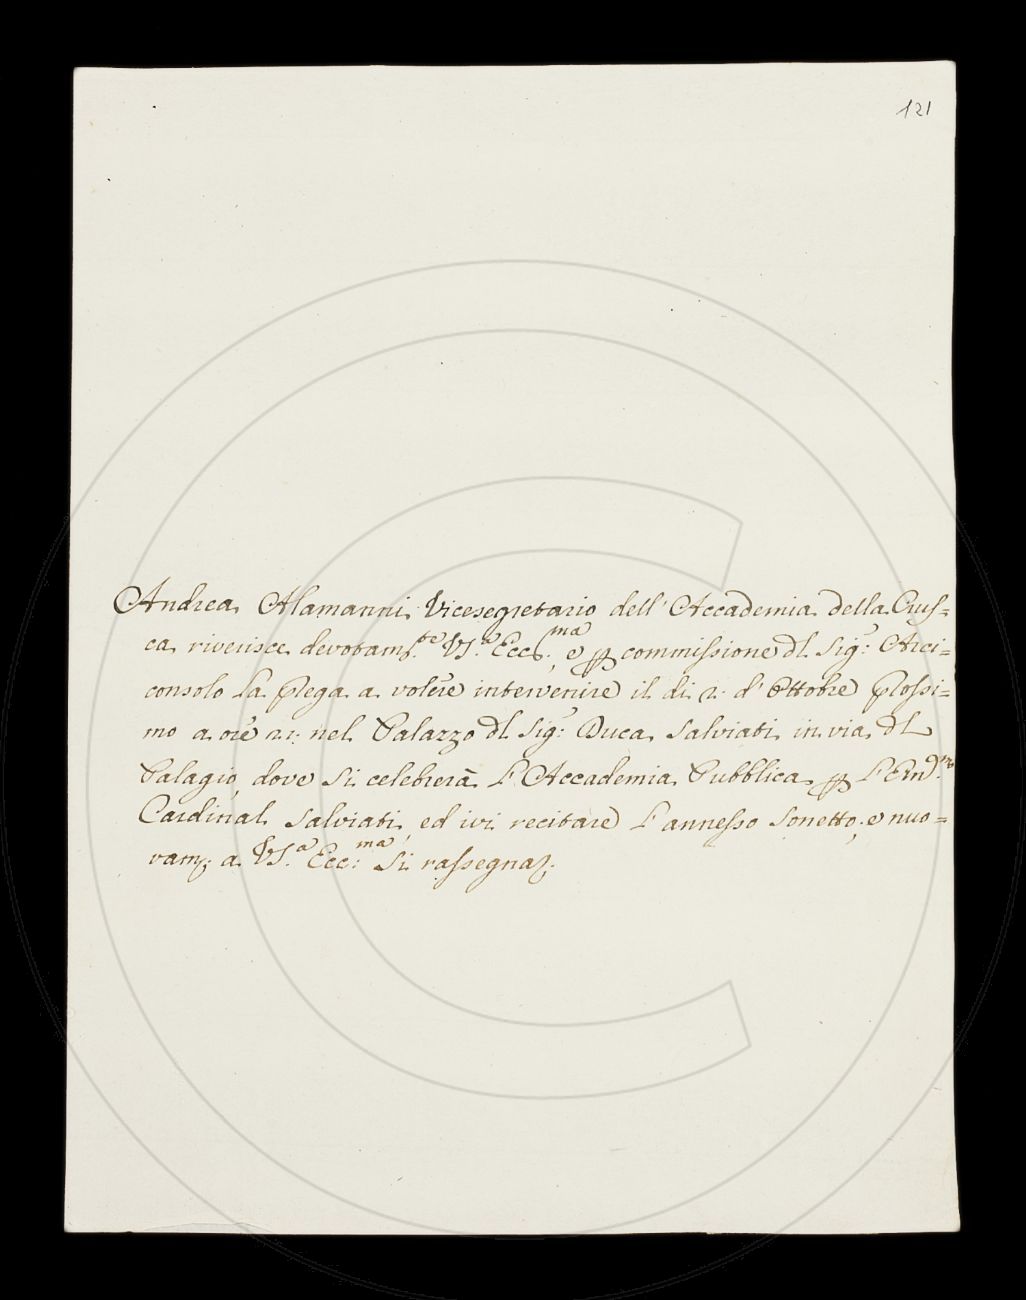 121
Andrea Alamanni Vicesegretario dell' Accademia della Crus=
ca riverisce devotam.te VS.a Ecc.ma, e p commissione dl Sig.e Arci=
consolo La prega a volere intervenire il di 2. d' Ottobre prossi=
mo a ore 21: nel Palazzo dl Sig.e Duca Salviati in via dl
Palagio, dove si celebrerà l'Accademia Pubblica p l'Em.mo
Cardinal Salviati, ed ivi recitare l'annesso Sonetto; e nuo=
vam. a VS.a Ecc:ma si rassegna.